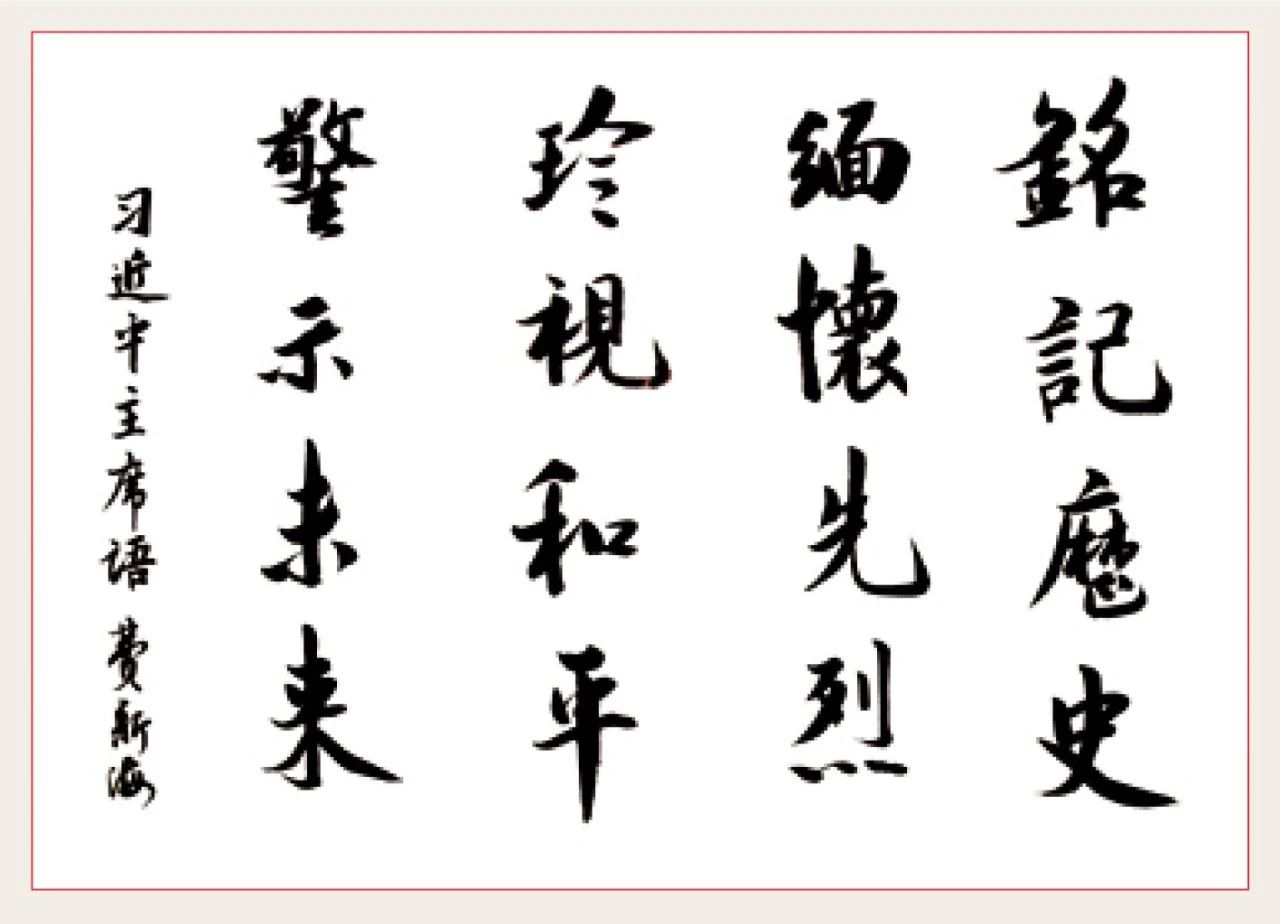 銘記歷史
緬懷先烈
珍視和平
警示未来
习近平主席語 費新海